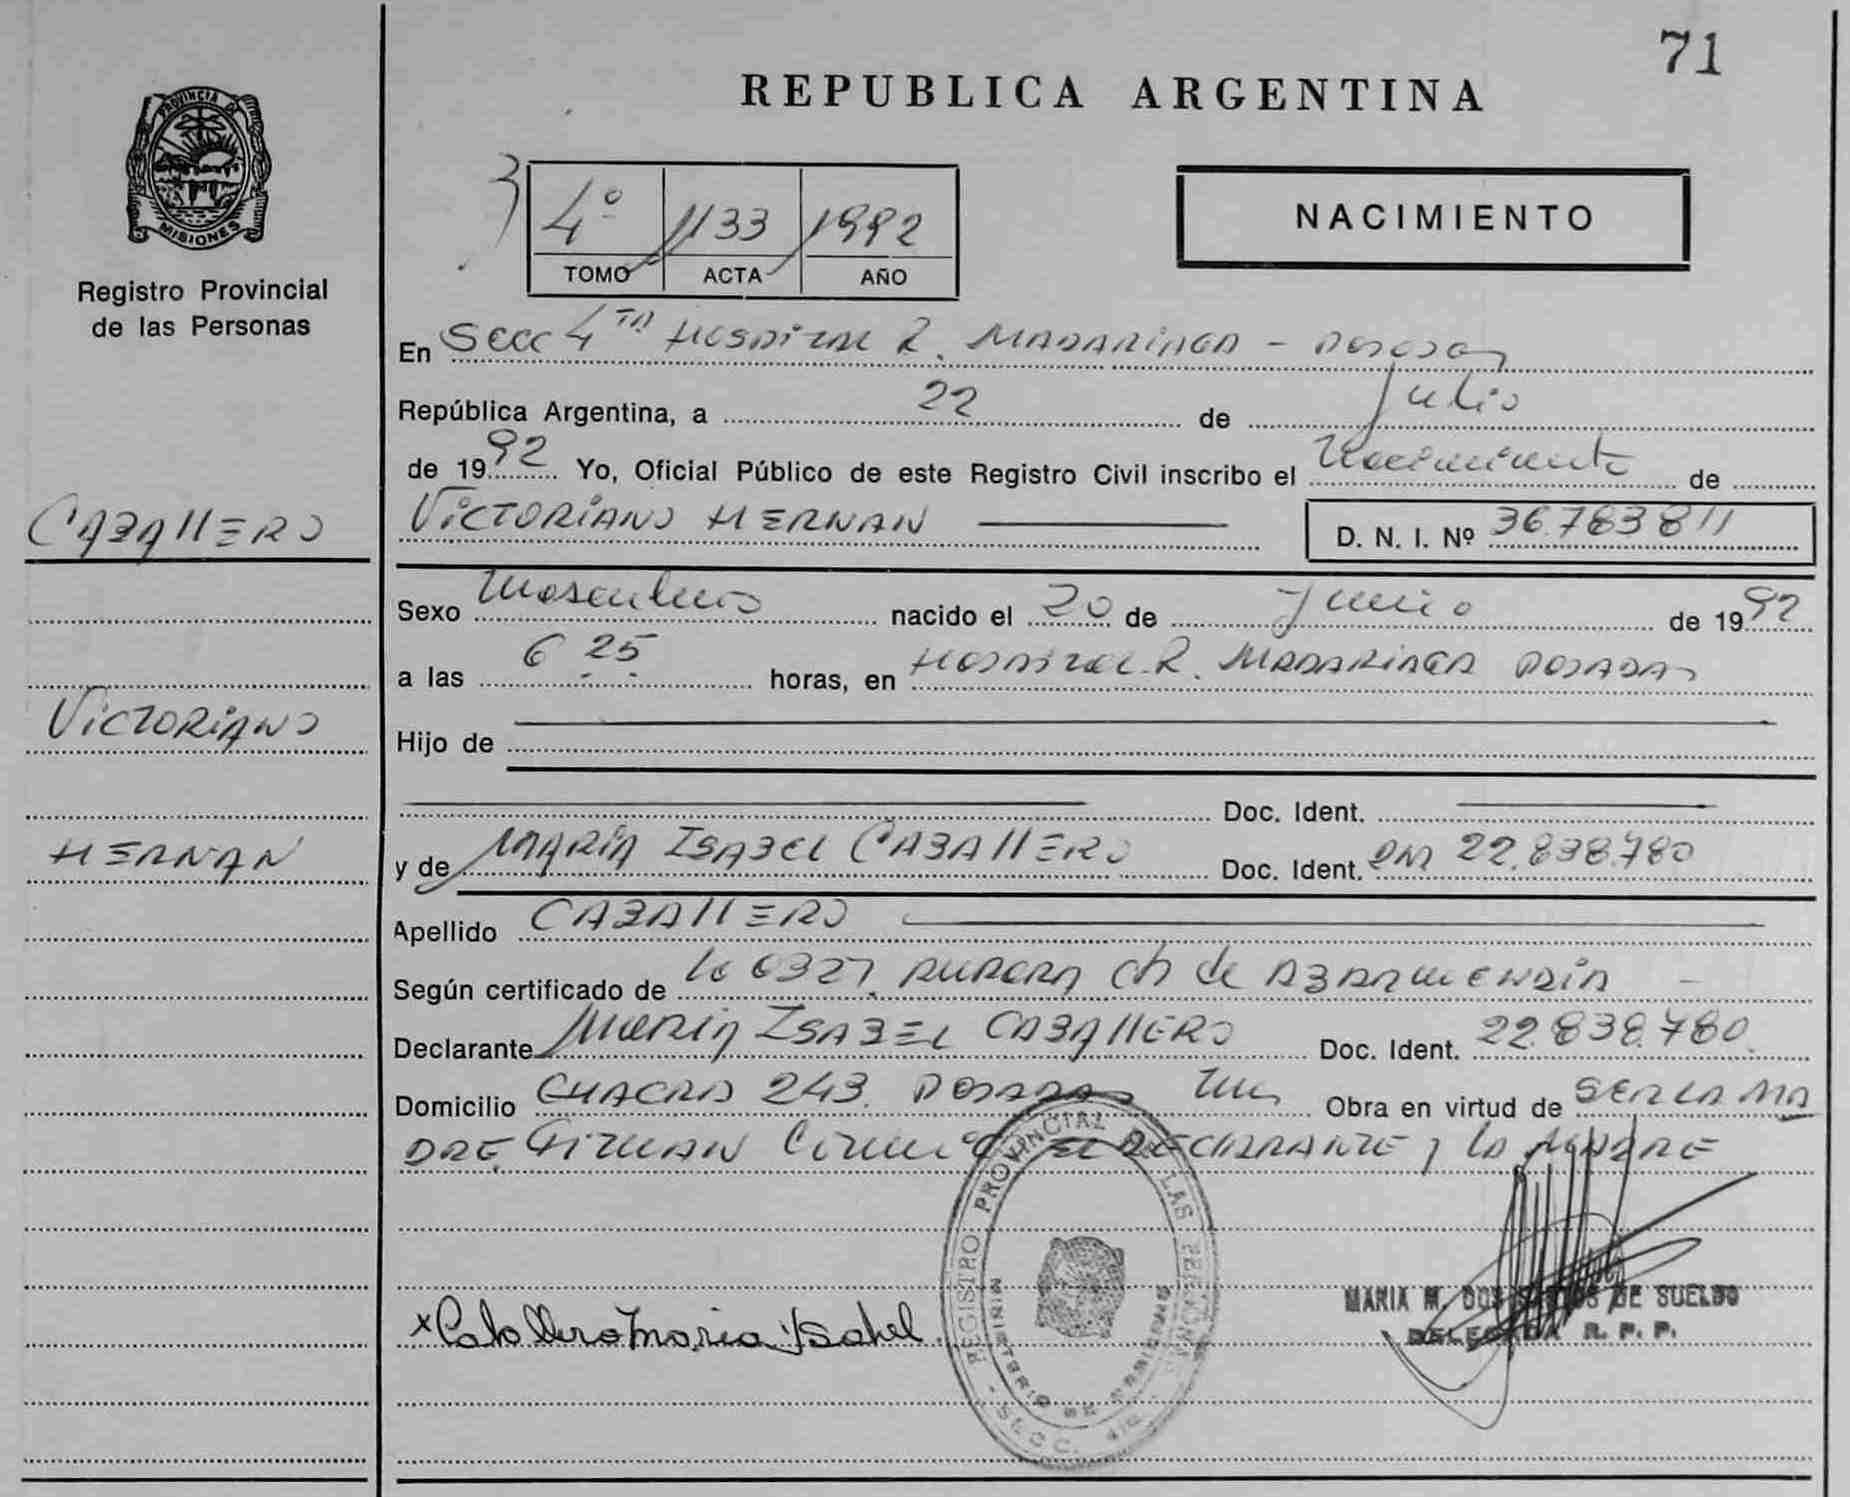 71
REPUBLICA ARGENTINA
PROVINCIA DE
MISIONES
Registro Provincial
de las Personas
4º 1133 1992
TOMO ACTA AÑO
NACIMIENTO
En Secc 4TA Hospital R. MADARIAGA - POSADAS
República Argentina, a 22 de Julio
de 1992 Yo, Oficial Público de este Registro Civil inscribo el Nacimiento de
CABALLERO
VICTORIANO HERNAN D. N. I. Nº 36.783811
Sexo Masculino nacido el 20 de Junio de 1992
a las 6 25 horas, en Hospital R. MADARIAGA POSADAS
VICTORIANO
Hijo de
Doc. Ident.
HERNAN
y de MARIA ISABEL CABALLERO Doc. Ident. 22.838.780
Apellido CABALLERO
Según certificado de 6327 AURORA de
Declarante MARIA ISABEL CABALLERO Doc. Ident. 22.838.780
Domicilio CHACRA 243 POSADAS Obra en virtud de SER LA MA
DRE FIRMAN EL DECLARANTE y la MADRE
x Caballero maria ysabel
REGISTRO PROVINCIAL DE LAS PERSONAS
MINISTERIO DE
SECC. 4TA
MARIA M. DOS SANTOS DE SUELDO
DELEGADA R. P. P.